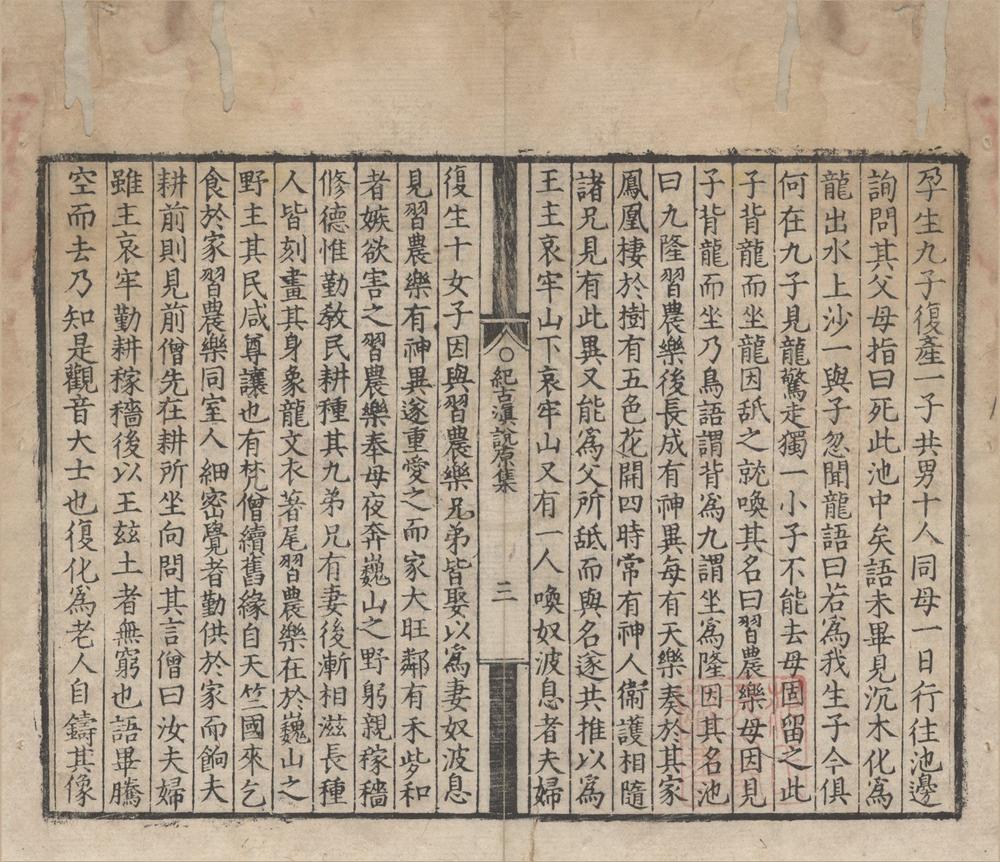 孕生九子復產一子共男十人同母一日行往池邊
詢問其父母指曰死此池中矣語未畢見沉木化為
龍出水上沙一與子忽聞龍語曰若為我生子今俱
何在九子見龍驚走獨一小子不能去母固留之此
子背龍而坐龍因舐之就喚其名曰習農樂母因見
子背龍而坐乃鳥語謂背為九謂坐為隆因其名池
曰九隆習農樂後長成有神異每有天樂奏於其家
鳳凰棲於樹有五色花開四時常有神人衛護相隨
諸兄見有此異又能為父所舐而與名遂共推以為
王主哀牢山下哀牢山又有一人喚奴波息者夫婦
紀古滇說原集
二
復生十女子因與習農樂兄弟皆娶以為妻奴波息
見習農樂有神異遂重愛之而家大旺鄰有禾些和
者嫉欲害之習農樂奉母夜奔巍山之野躬親稼穡
修德惟勤教民耕種其九弟兄有妻後漸相滋長種
人皆刻畫其身象龍文衣著尾習農樂在於巍山之
野主其民咸尊讓也有梵僧續舊緣自天竺國來乞
食於家習農樂同室人細密覺者勤供於家而餉夫
耕前則見前僧先在耕所坐向問其言僧曰汝夫婦
雖主哀牢勤耕稼穡後以王茲土者無窮也語畢騰
空而去乃知是觀音大士也復化為老人自鑄其像